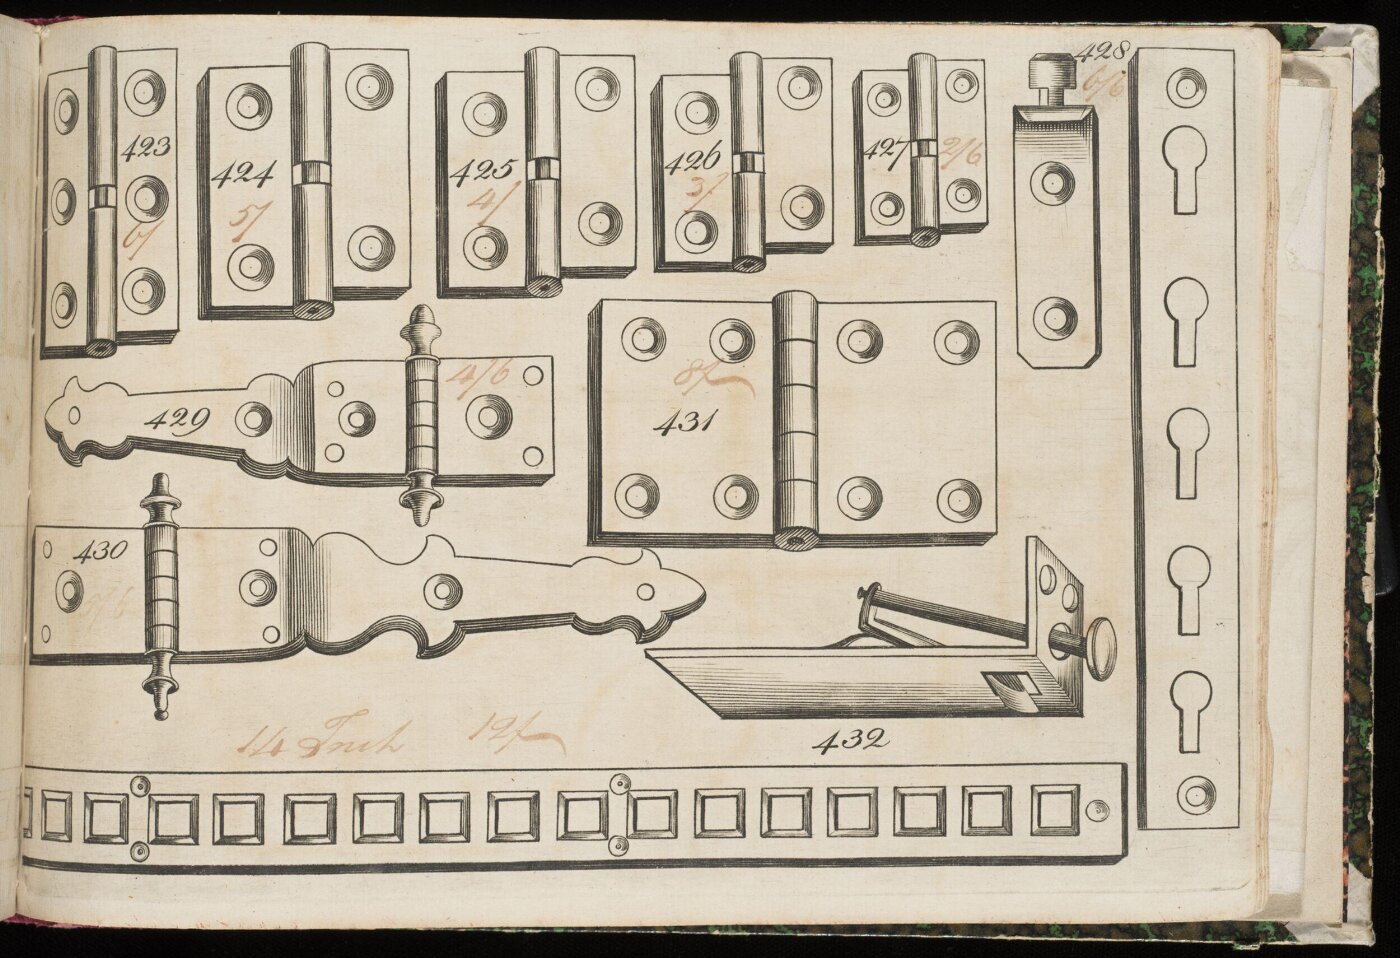 423
6/
424
5/
425
4/
426
3/
427
2/6
428
6/6
429
4/6
430
431
8/
432
14 Inch 12/